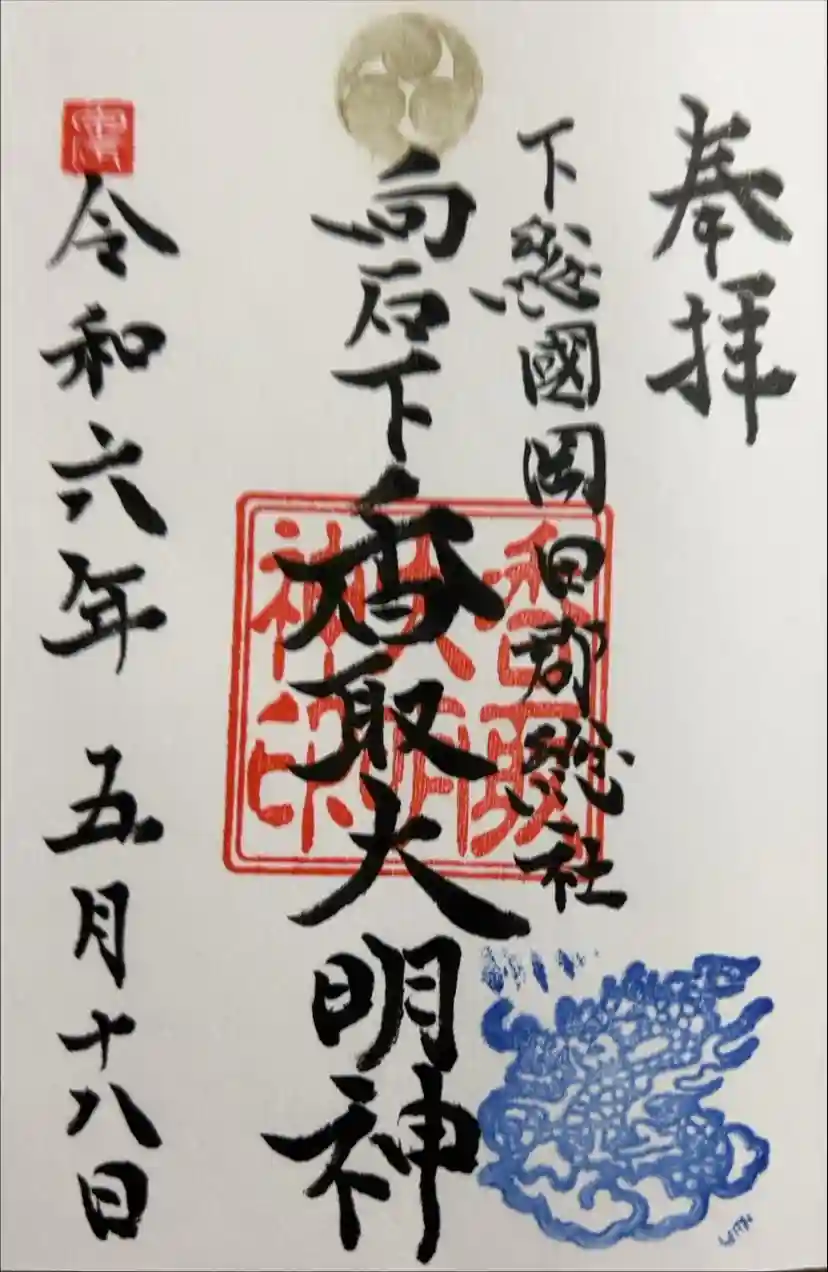 奉拝
下總國岡田郡總社
向石下香取大明神
香取
大明
神印
令和六年五月十八日